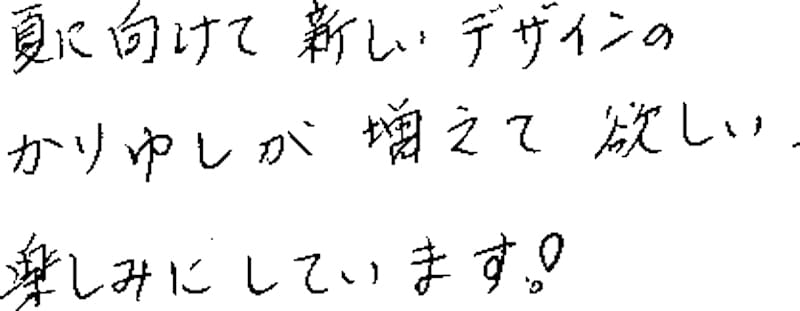 夏に向けて 新しい デザインの
かりゆしが 増えて 欲しい、
楽しみにしています!